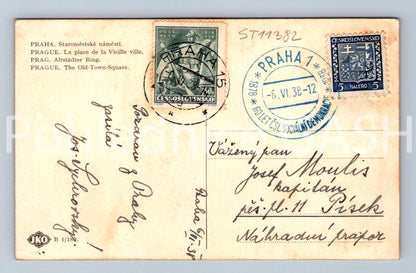 PRAHA. Staroměstské náměstí.
PRAGUE. La place de la Vieille ville.
PRAG. Altstädter Ring.
PRAGUE. The Old-Town-Square.
ST11382
PRAHA 15
ČESKOSLOVENSKO
PRAHA 1
1878 1938
-6.VI.38-12
ČSL. SOCIÁLNÍ DEMOKRACIE
ČESKOSLOVENSKO
5 HALÉŘŮ 5
Pozdrav z Prahy
posílá
Jos.
Praha
6/VI. 38
Vážený pan
Josef Moulis
kapitán
pěš. pl. 11 Písek
Náhradní prapor
JKO B 1/182